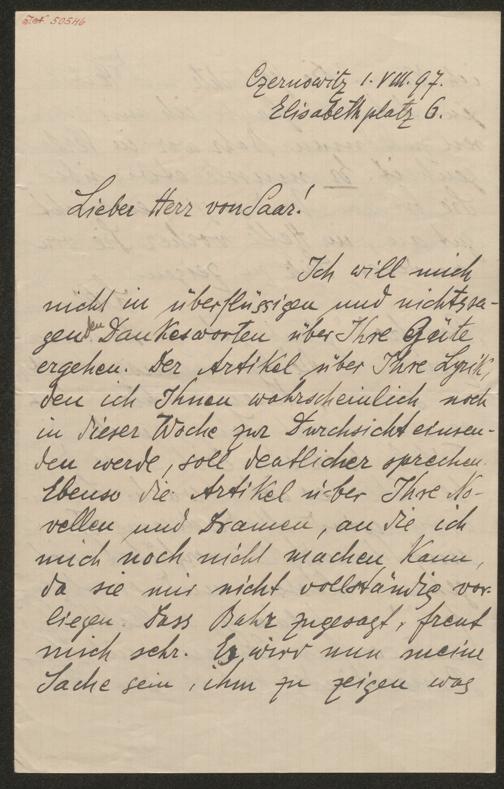 I.N. 50546
Czernowitz 1. VIII. 97.
Elisabethplatz 6.
Lieber Herr von Saar!
Ich will mich
nicht in überflüssigen und nichtssa-
genden Dankesworten über Ihre Güte
ergehen. Der Artikel über Ihre Lyrik,
den ich Ihnen wahrscheinlich noch
in dieser Woche zur Durchsicht einsen-
den werde, soll deutlicher sprechen.
Ebenso die Artikel über Ihre No-
vellen und Dramen, an die ich
mich noch nicht machen kann,
da sie mir nicht vollständig vor-
liegen. Dass Bahr zugesagt, freut
mich sehr. Es wird nun meine
Sache sein, ihm zu zeigen was